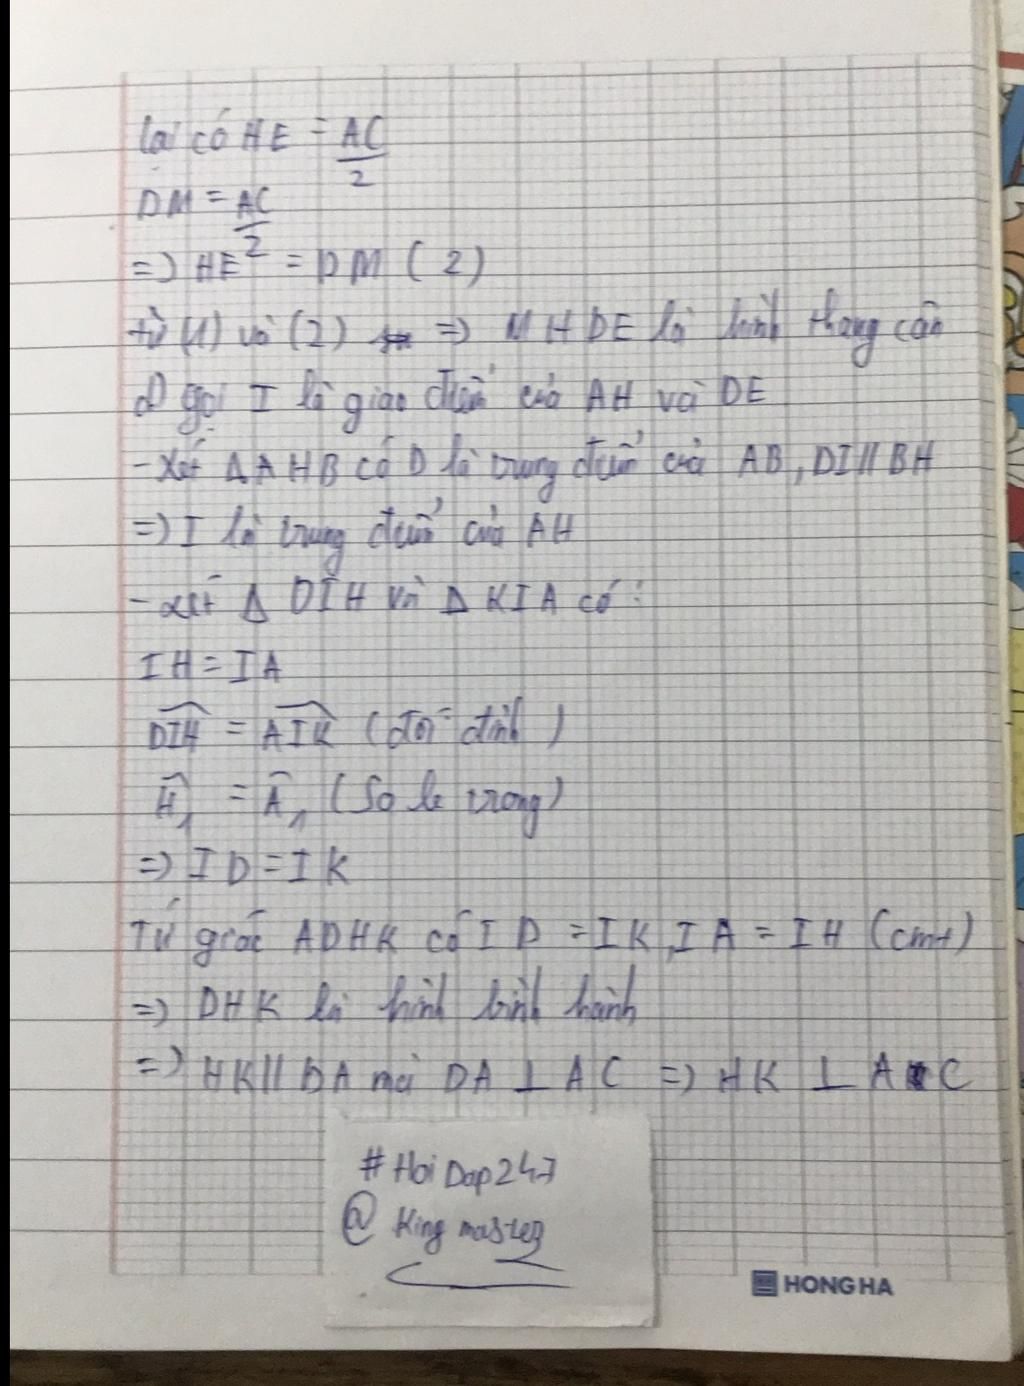 Lại có HE = AC/2
DM = AC/2
=> HE = DM (2)
từ (1) và (2) => MHDE là hình thang cân
d) gọi I là giao điểm của AH và DE
- Xét Δ AHB có D là trung điểm của AB, DI // BH
=> I là trung điểm của AH
- xét Δ DIH và Δ KIA có :
IH = IA
DIH = AIK (đối đỉnh)
H₁ = A₁ (So le trong)
=> ID = IK
Tứ giác ADHK có ID = IK, IA = IH (cmt)
=> DHK là hình bình hành
=> HK // DA mà DA ⊥ AC => HK ⊥ AC
# HoiDap247
@ King master
HONG HA